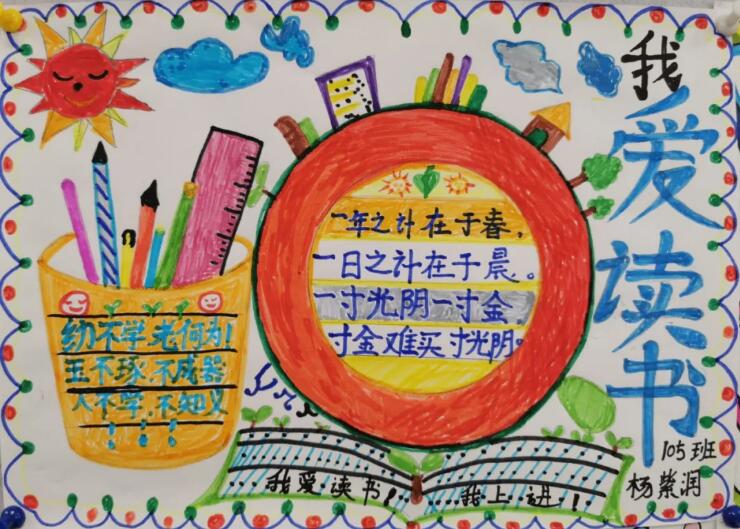 我爱读书
一年之计在于春，
一日之计在于晨。
一寸光阴一寸金
寸金难买寸光阴。
幼不学，老何为！
玉不琢，不成器
人不学，不知义
我爱读书！
我上进！
105班
杨紫润